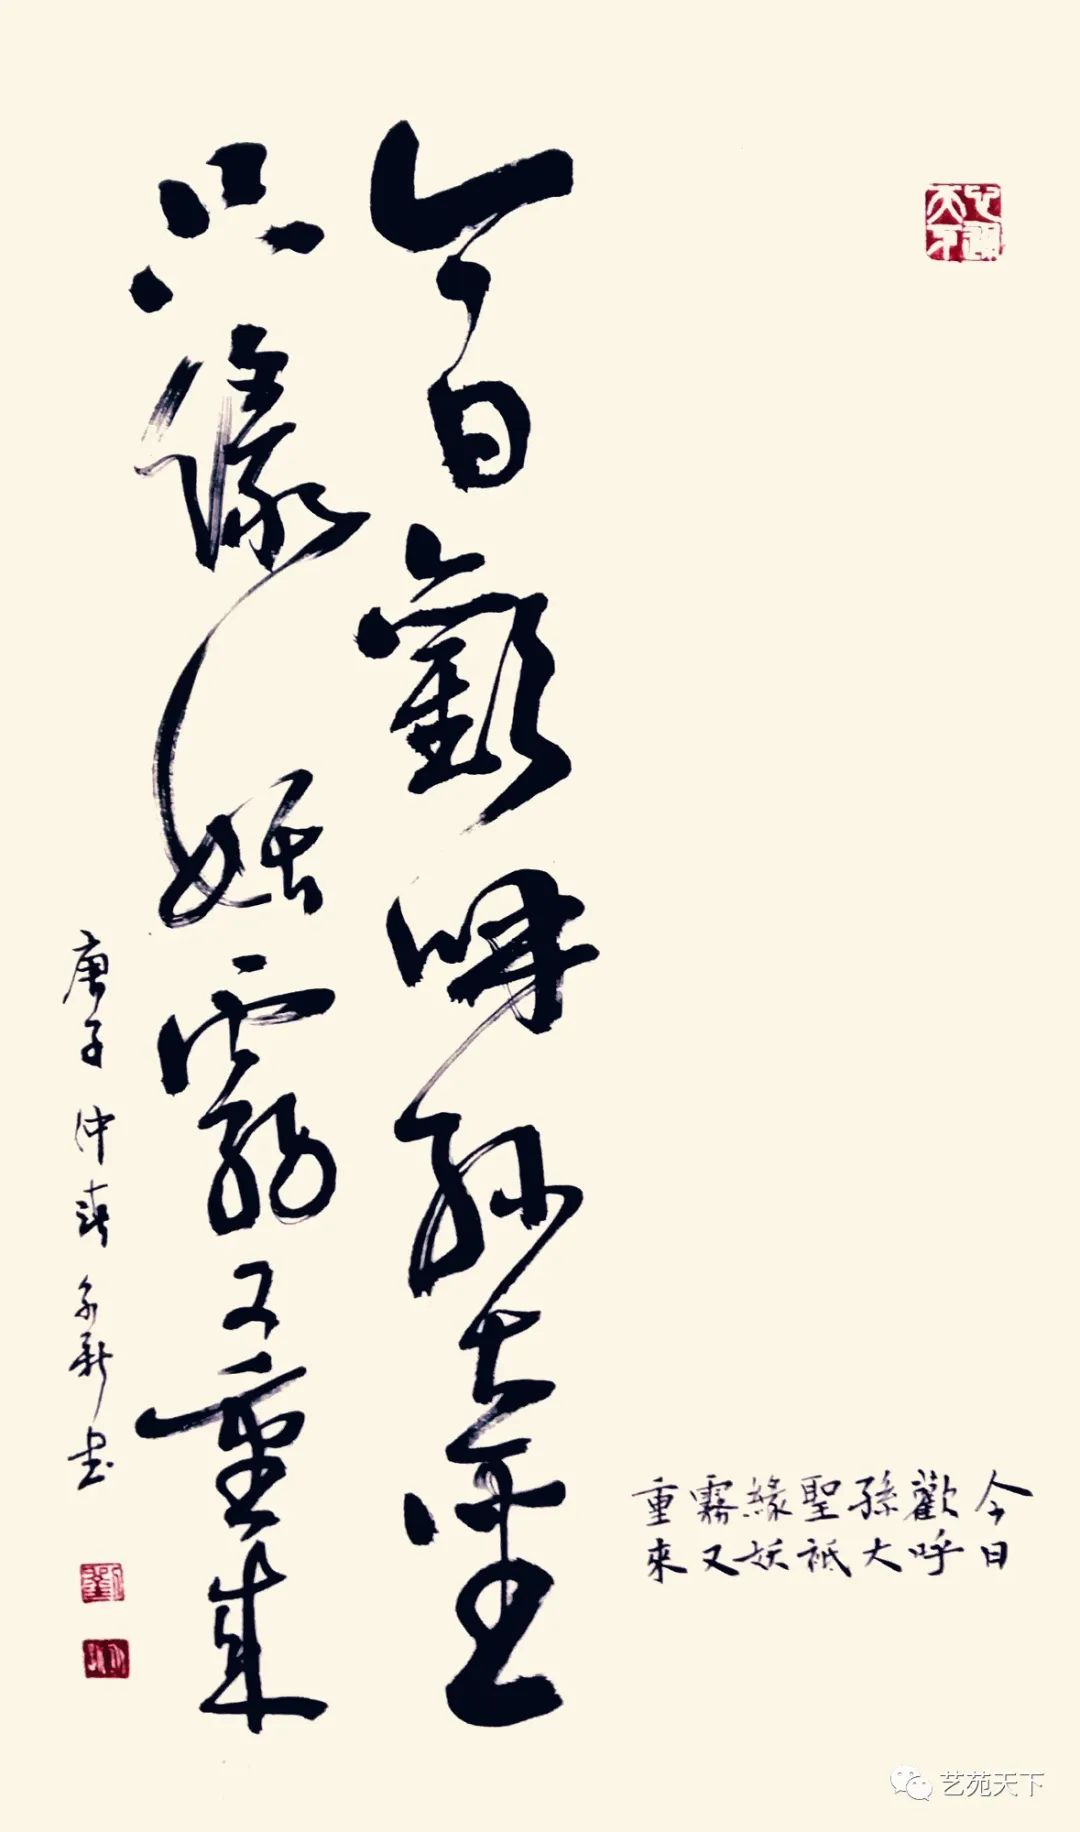 今日歡呼孫大聖
只緣妖霧又重來
庚子仲春
書
今日
歡呼
孫大
聖祗
緣妖
霧又
重來
艺苑天下